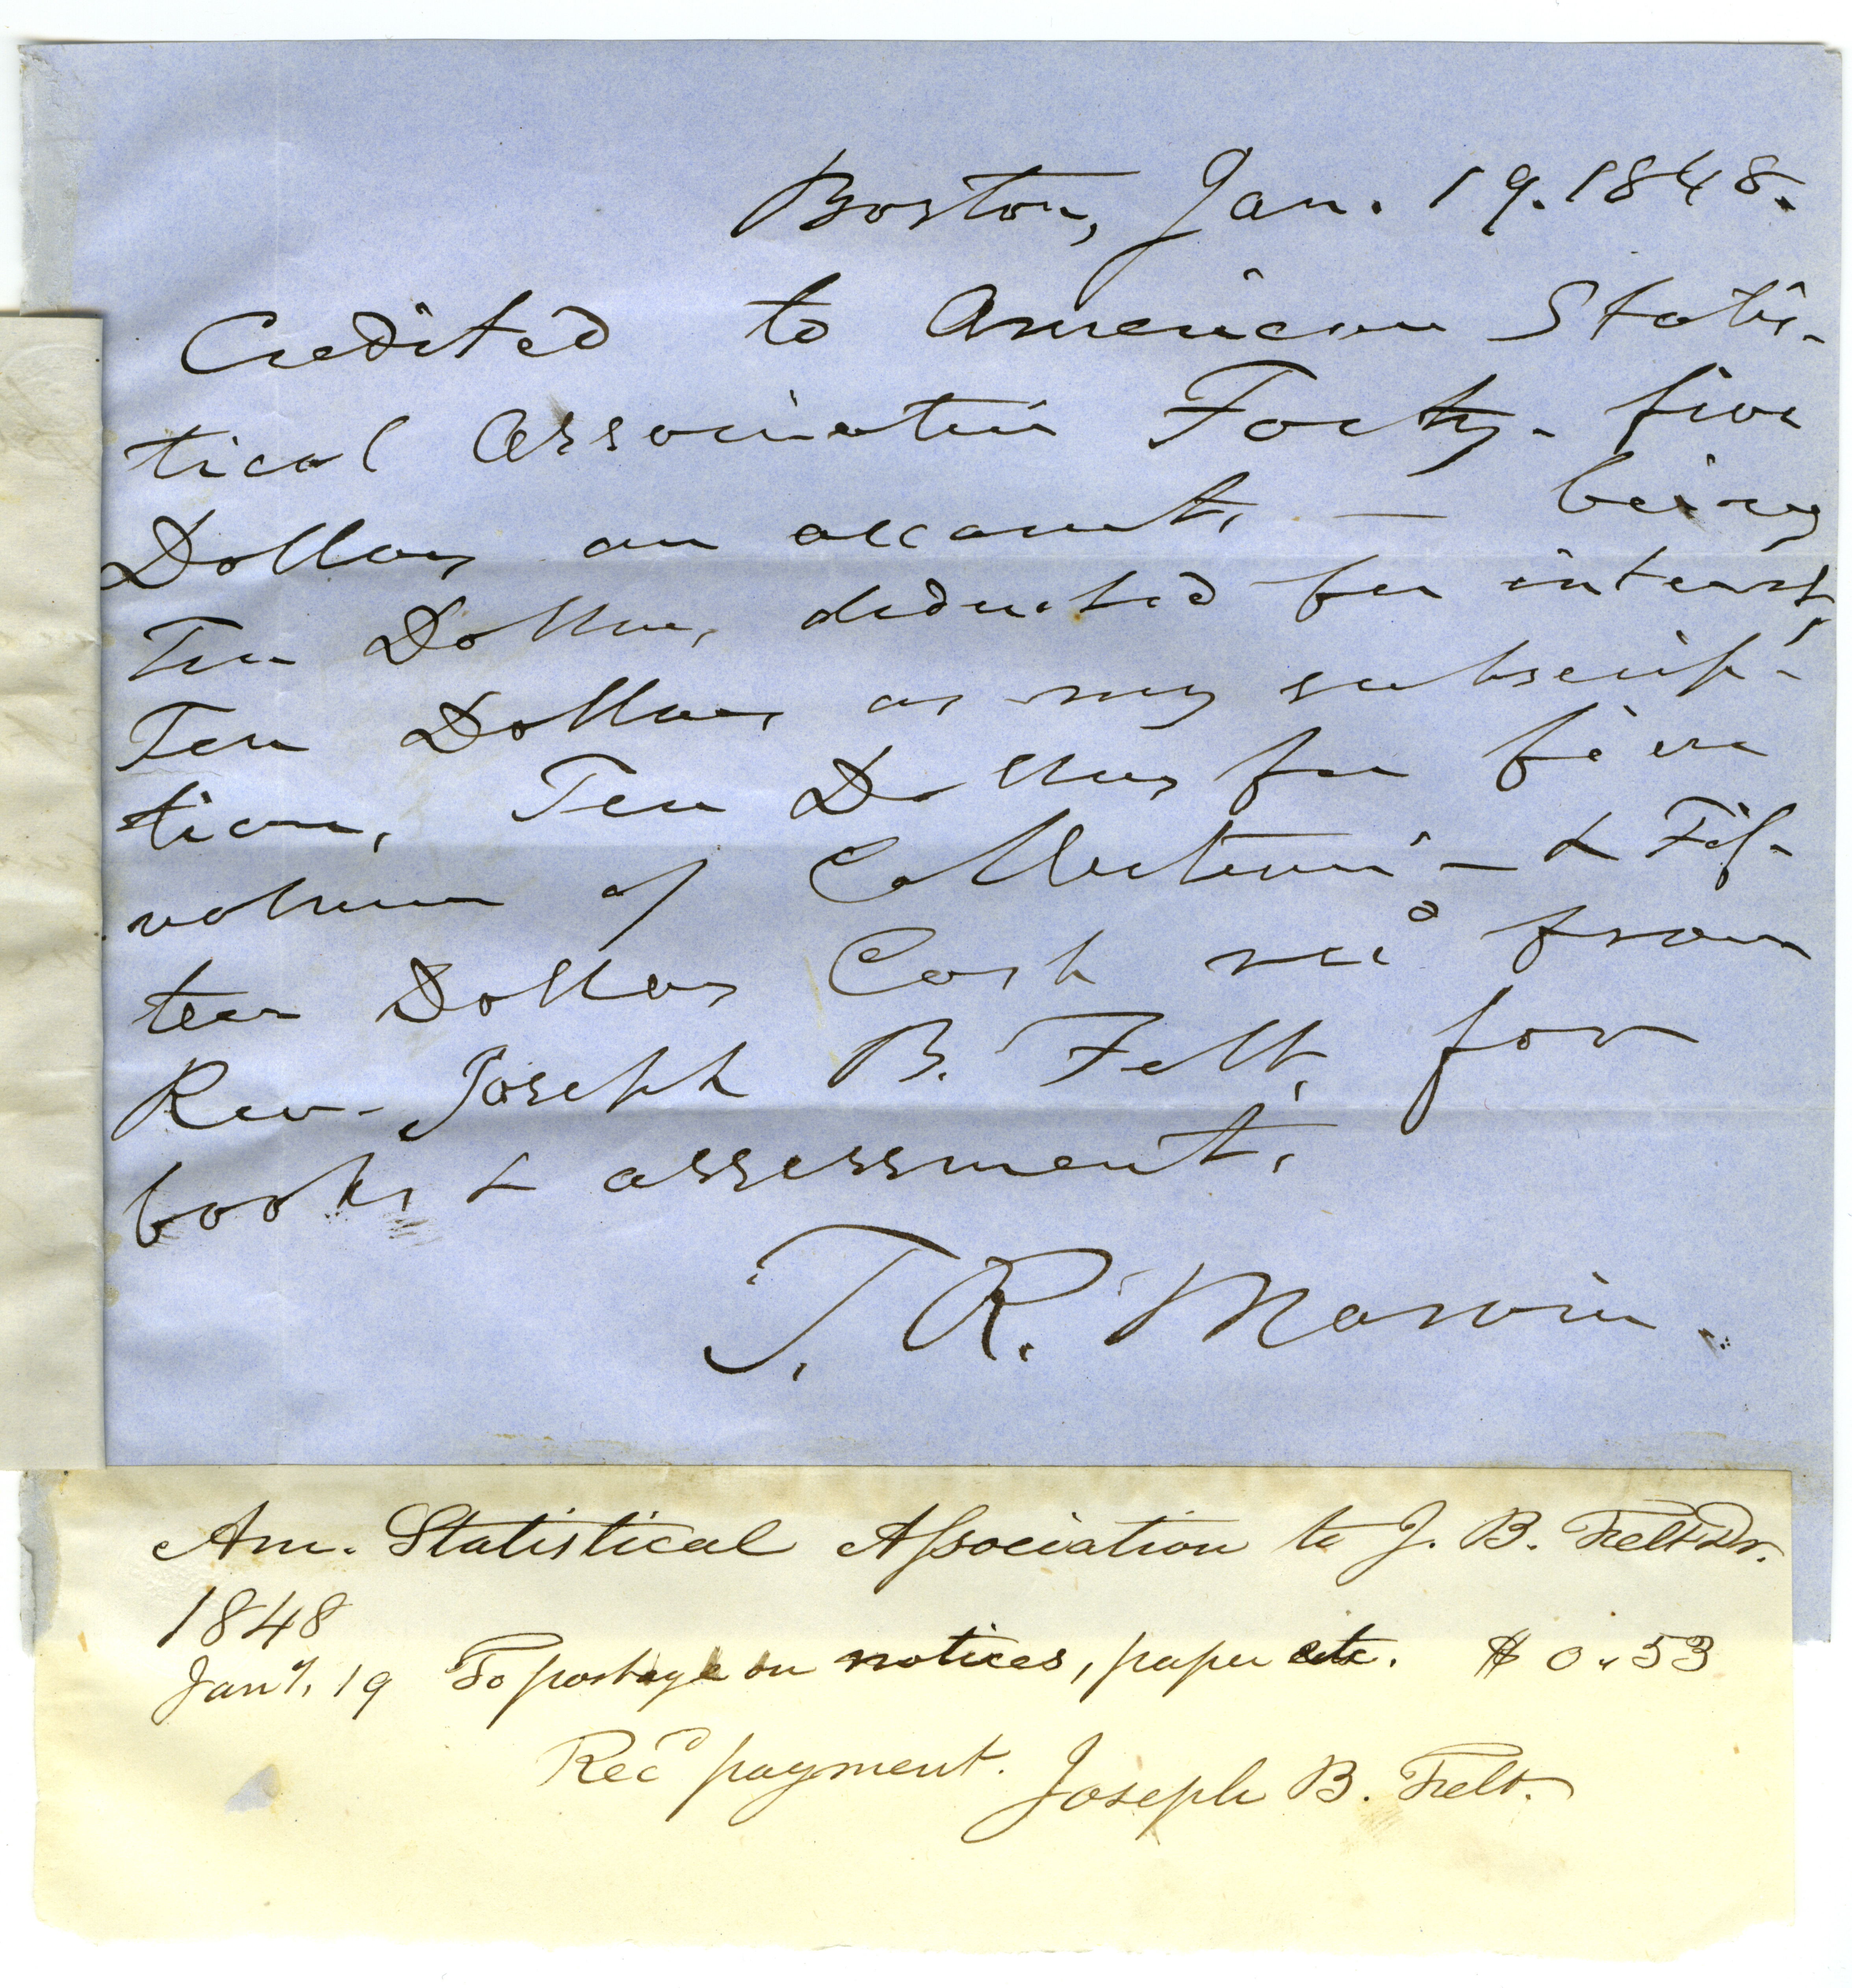 Boston, Jan. 19. 1848.
Credited to American Statis-
tical Association Forty-five
Dollars on account, — being
Ten Dollars, deducted for interest,
Ten Dollars as my subscrip-
tion, Ten Dollars for five
volumes of Collections — & Fif-
teen Dollars Cash recd from
Rev. Joseph B. Felt, for
books & assessment.
T. R. Marvin.
Am. Statistical Association to J. B. Felt Dr.
1848
Jany. 19 To postage on notices, paper etc. $ 0.53
Recd payment. Joseph B. Felt.